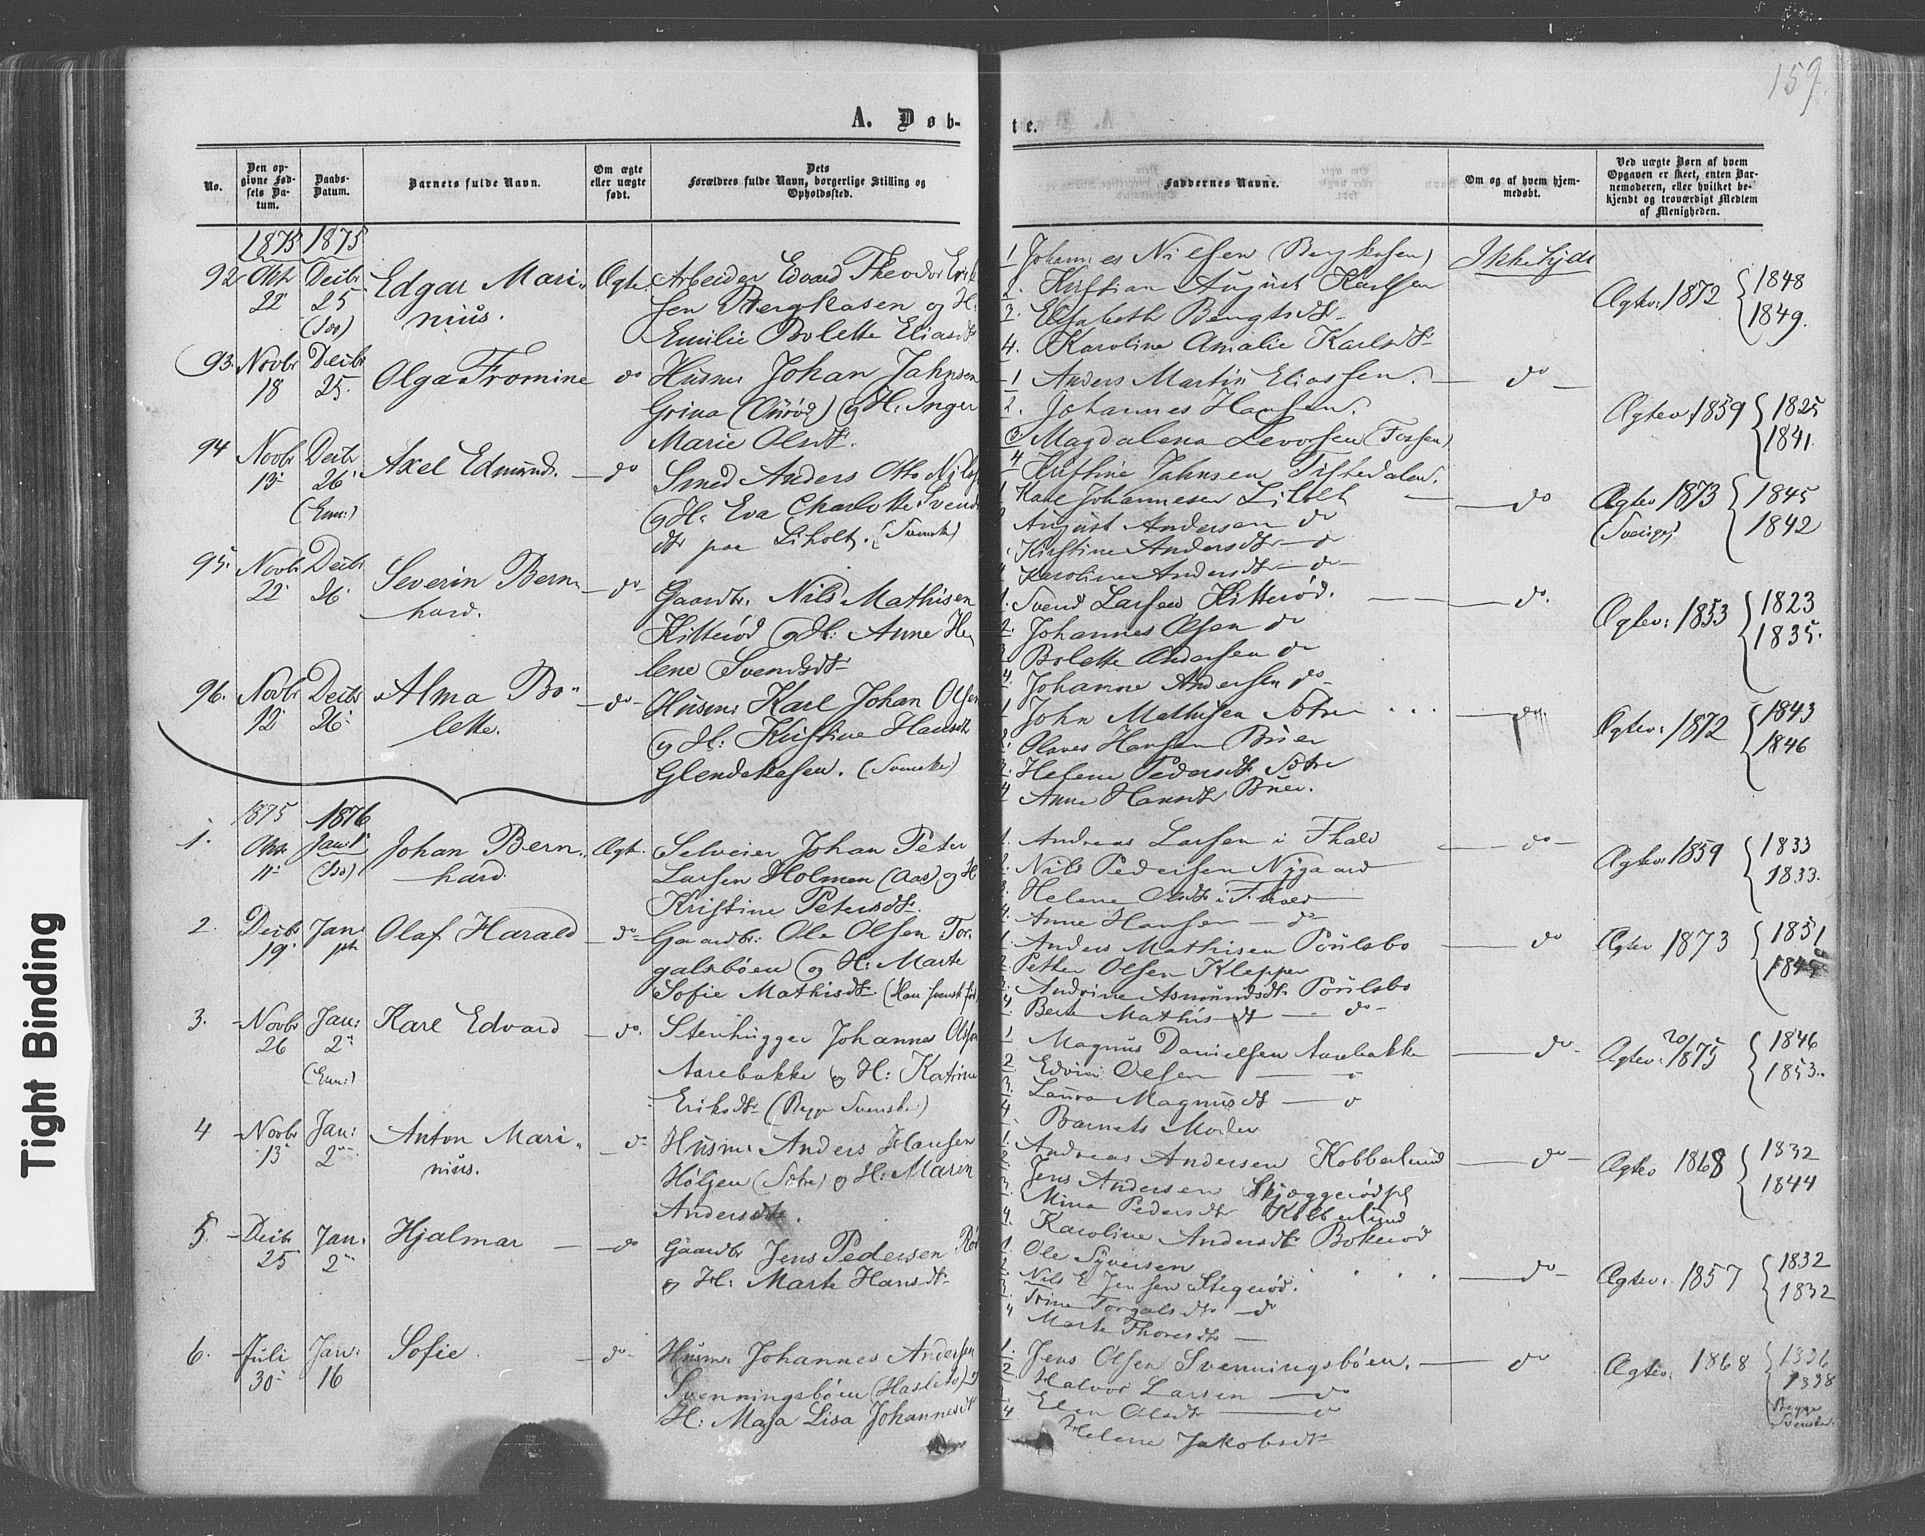 159.
A. Døb-
te.
No.
Den op-
givne Fød-
sels Da-
tum.
Daabs-
Datum.
Barnets fulde Navn.
Om ægte
eller uægte
født.
Dets
Forældres fulde Navn, borgerlige Stilling og
Opholdssted.
Faddernes Navne.
Om og af hvem hjem-
medøbt.
Ved uægte Børn af hvem
Opgaven er skeet, enten Bar-
nemoderen, eller hvilket be-
kjendt og troværdigt Medlem
af Menigheden.
1875 1875
92 Oktr 22 Decbr 25 Edgar Mari-
nius.
Ægte Arbeider Edvard Theodor Erik
sen Bergkasen og H:
Emilie Bolette Eliasdt
1 Johannes Nilsen (Bergkasen)
2. Kristian August Karlsen
3. Elisabeth Bengtsdt
4. Karoline Amalie Karlsdt
Ikke hjdt
Ægtev: 1872 { 1848
1849.
93. Novbr 18 Decbr 25. Olga Fromine
do Husm: Johan Jahnsen
Grina og H: Inger
Marie Olsdt.
1 Anders Martin Eliassen.
2. Johannes Hansen.
3 Magdalena
4 Kristine Jahnsen Tistedalen.
do
Ægtev: 1859 { 1825
1841.
94 Novbr 13 Decbr 26 Axel Edmund.
do Smed Anders Otto
og H: Eva Charlotte Svends
dtr paa Liholt. (Svenske)
1 Karl Johannesen Liholt
2 August Andersen do
Kristine Andersdt do
Karoline Andersdt do
do
Ægtev 1873 { 1845
(Sverige) 1842
95. Novbr 22 Decbr 26 Severin Bern-
hard.
do Gaardbr. Nils Mathisen
Kitterød og H: Anne He
lene Svendsdt
1. Svend Larsen Kitterød.
2. Johannes Olsen do
3 Bolette Andersen do
4. Johanne Andersen do
do.
Ægtev: 1853 { 1823
1835.
96. Novbr 12 Decbr 26 Alma Bo-
lette.
do Husm: Karl Johan Olsen
og H: Kristine Hansdt
Glendekasen. (Svenske)
1 John Mathisen Sætre
2 Olaves Hansen Buer
3. Helene Pedersdt Sætre
4 Anne Hansdt Buer.
do
Ægtev: 1872 { 1843
1846
1875 1876
1. Oktr 11 Jan 1 Johan Bern-
hard
Ægt. Selveier Johan Peter
Larsen Holmen (Aas) og H
Kristine Petersdt.
1. Andreas Larsen i
2. Nils Pedersen Nygaard
3. Helene Olsdt i
4. Anne Hansen do
do
Ægtev: 1859 { 1833
1833.
2. Decbr 19 Jan: Olaf Harald
do Gaardbr: Ole Olsen Tor-
galsbøen og H: Marte
Sofie Mathisdt
1. Anders Mathisen Poulsbo
2. Petter Olsen Klepper
3. Andrine Asmundsdt Poulsbo
4. Berte Mathisdt do
do
Ægtev 1873 { 1851
3. Novbr 26 Jan: 2 Karl Edvard
do Stenhugger Johannes Olsen
Aarebakke og H: Katrine
Eriksdt (Begge Svenske)
1 Magnus Danielsen Aarebakke
2 Edvin Olsen
3. Laura Magnusdt
4. Barnets Moder
do
Ægtev: 20/1875 { 1846
1853.
4 Novbr 13 Jan: 2 Anton Mari-
nius.
do Husm: Anders Hansen
(Sætre) og H: Maren
Andersdt.
1. Andreas Andersen Kobberlund
2. Jens Andersen Skjæggerød
3. Mina Pedersdt Kobberlund
4. Karoline Andersdt Bokerød
do
Ægtev 1868 { 1832
1844
5. Decbr 25 Jan: 2 Hjalmar
do Gaardbr Jens Pedersen
og H: Marte Hansdt
1. Ole Syversen
2. Nils E Jensen Stegerød.
3. Trine Torgalsdtr do
4 Marte Thoresdtr
do
Ægtev: 1857 { 1832
1832
6. Juli 30 Jan: 16 Sofie.
do Husm: Johannes Andersen
Svenningsbøen
H: Maja Lisa Johannesdt
1. Jens Olsen Svenningsbøen.
2 Halvor Larsen do
3 Elen Olsdt do
4 Helene Jakobsdt
do
Ægtev: 1868 { 1836
1838
Begge
Svenske.
Tight Binding